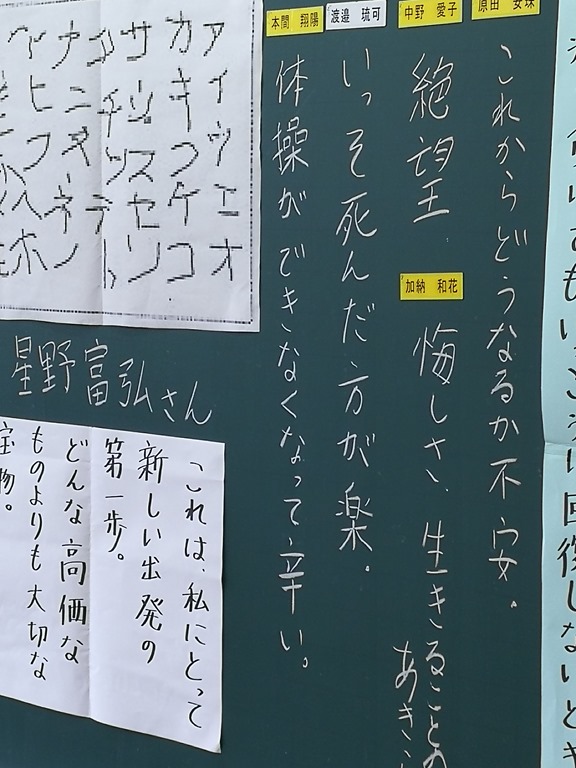 回復しないと
原田 安珠
これからどうなるか不安。
中野 愛子
絶望
加納 和花
悔しさ、生きることの
あきら
渡邉 琉可
いっそ死んだ方が楽。
本間 翔陽
体操ができなくなって辛い。
アイウエオ
カキクケコ
サシスセソ
タチツテト
ナニヌネノ
ヒフヘホ
星野富弘さん
これは、私にとって
新しい出発の
第一歩。
どんな高価な
ものよりも大切な
宝物。